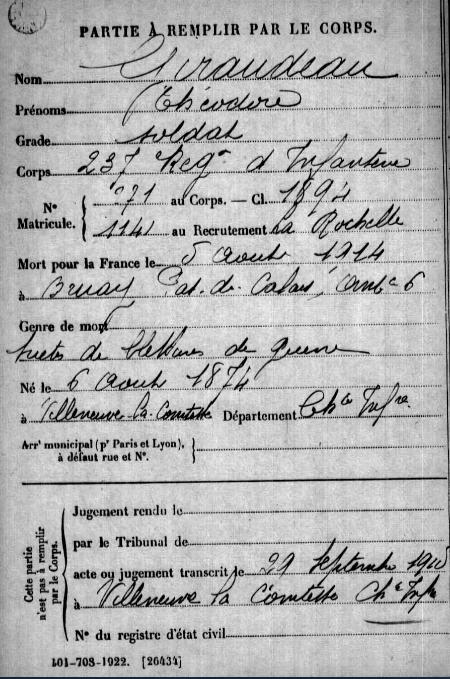 PARTIE À REMPLIR PAR LE CORPS.
Nom Giraudeau
Prénoms Théodore
Grade soldat
Corps 237 Regt d'Infanterie
N° Matricule. { 271 au Corps. — Cl. 1894
1141 au Recrutement La Rochelle
Mort pour la France le 5 août 1914
à Bruay Pas-de-Calais, ambce 6
Genre de mort
suites de blessures de guerre
Né le 6 août 1874
à Villeneuve-la-Comtesse Département Chte Infre
Arrt municipal (pr Paris et Lyon), à défaut rue et N°. {
Cette partie n'est pas à remplir par le Corps.
Jugement rendu le
par le Tribunal de
acte ou jugement transcrit le 29 septembre
à Villeneuve la Comtesse Chte Infre
N° du registre d'état civil
101-708-1922. [26434]